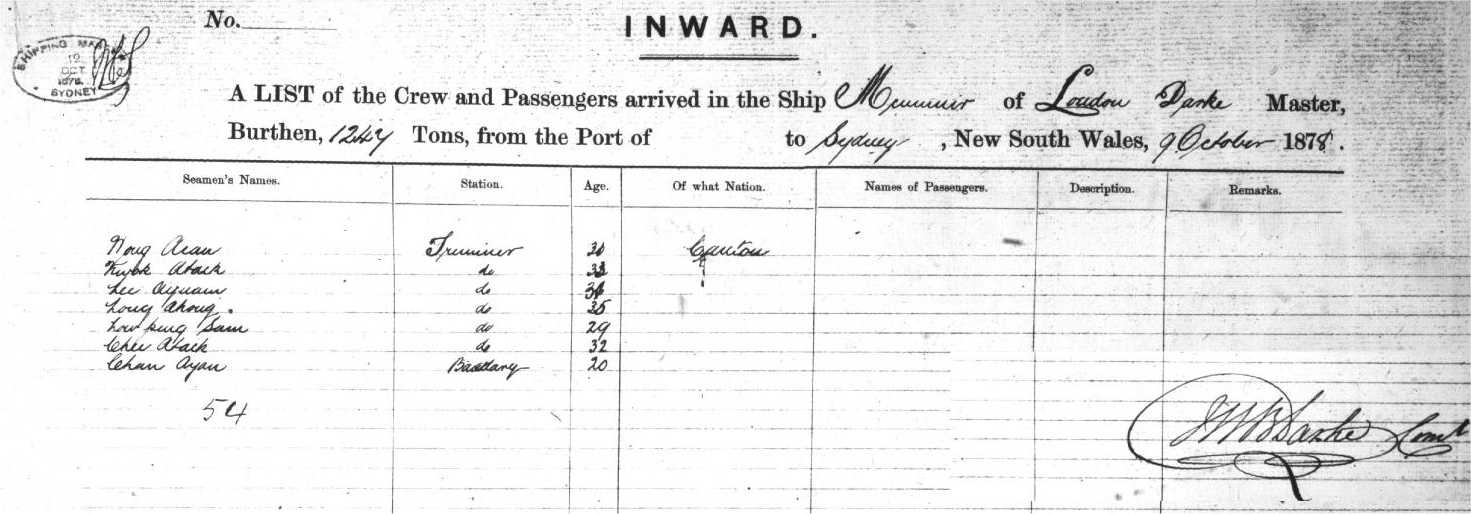 No.
INWARD.
SHIPPING MAS
12
OCT
1878
SYDNEY
A LIST of the Crew and Passengers arrived in the Ship of London Darke Master,
Burthen, 1247 Tons, from the Port of to Sydney, New South Wales, 9 October 1878.
Seamen's Names. Station. Age. Of what Nation. Names of Passengers. Description. Remarks.
Trimmer Canton
Kwok Atack do
Lee do
Long Ahong. do 35
Low ping Sam do 29
Chee Atack do 32
Chan Ayan 20
54
Darke